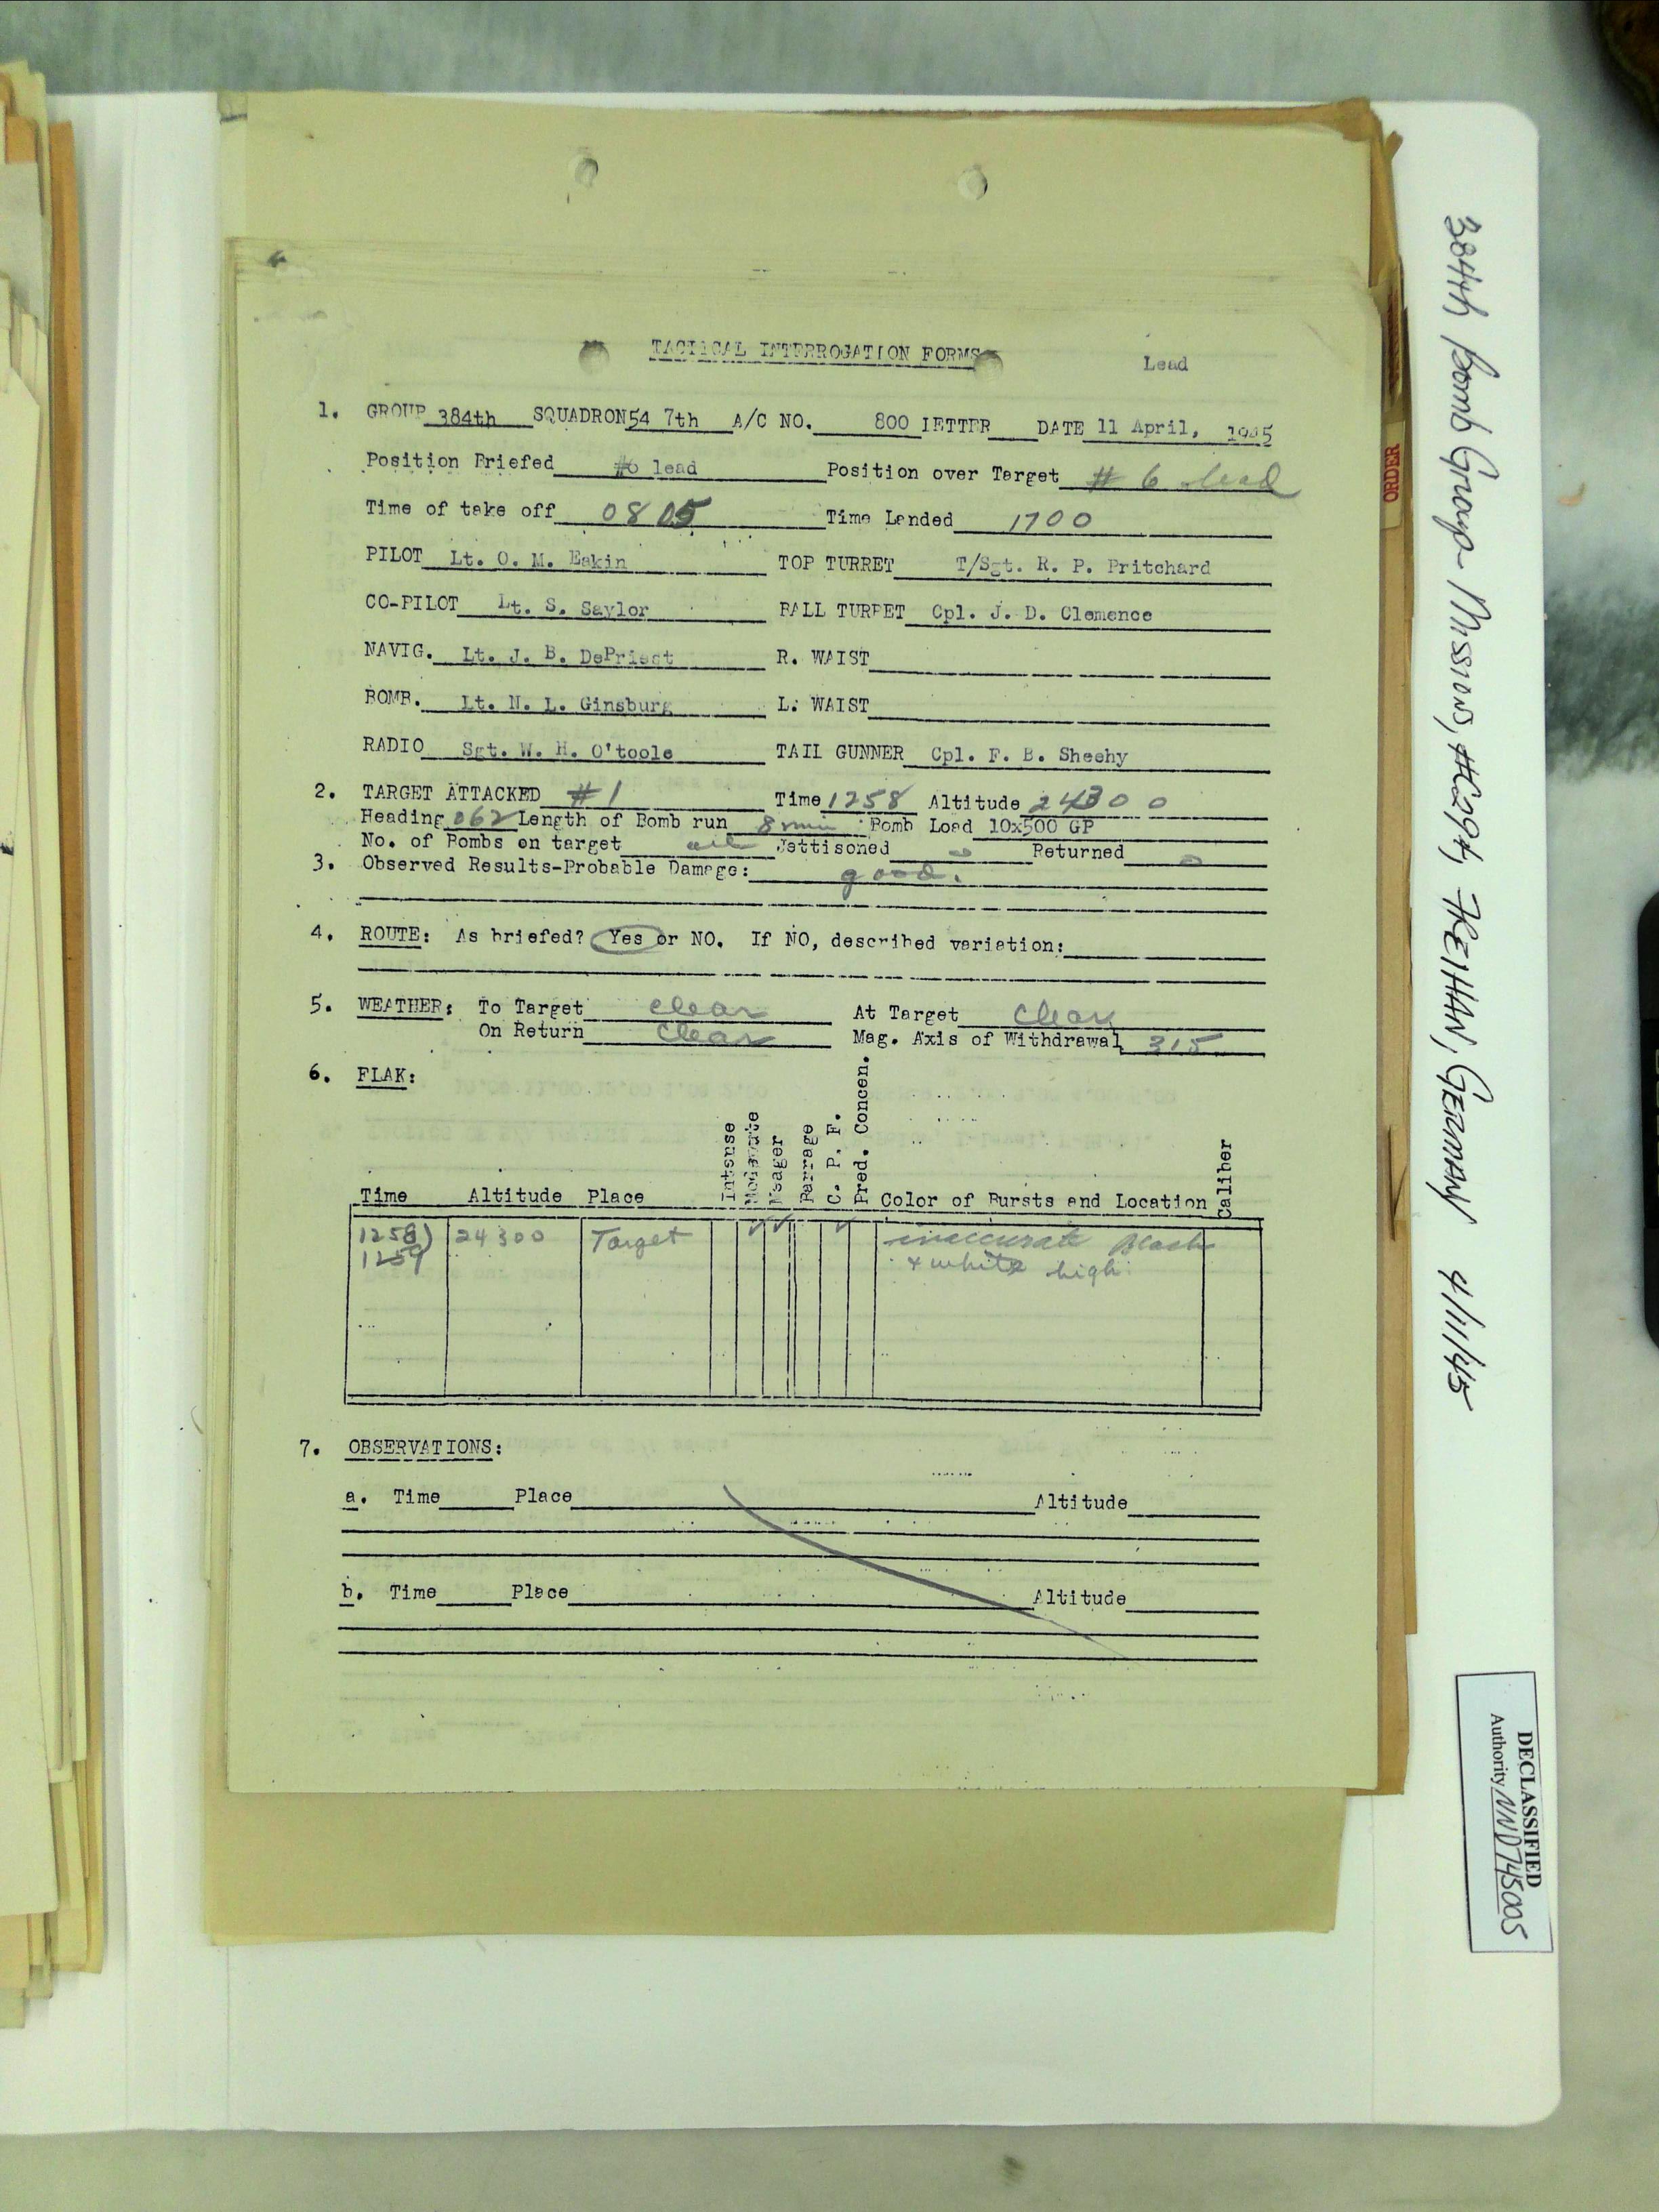 TACTICAL INTERROGATION FORMS
Lead
1. GROUP 384th SQUADRON 54 7th A/C NO. 800 LETTER DATE 11 April, 1945
Position Briefed #6 lead Position over Target # 6 lead
Time of take off 0805 Time Landed 1700
PILOT Lt. O. M. Eakin TOP TURRET T/Sgt. R. P. Pritchard
CO-PILOT Lt. S. Saylor BALL TURRET Cpl. J. D. Clemence
NAVIG. Lt. J. B. DePriest R. WAIST
BOMB. Lt. N. L. Ginsburg L. WAIST
RADIO Sgt. W. H. O'toole TAIL GUNNER Cpl. F. B. Sheehy
2. TARGET ATTACKED #1 Time 1258 Altitude 24300
Heading 062 Length of Bomb run 8 min Bomb Load 10x500 GP
No. of Bombs on target all Jettisoned 0 Returned 0
3. Observed Results-Probable Damage: good.
4. ROUTE: As briefed? Yes or NO. If NO, described variation:
5. WEATHER: To Target clear At Target Clear
On Return Clear Mag. Axis of Withdrawal 315
6. FLAK:
Time Altitude Place Intense Moderate Meager Barrage C. P. F. Pred. Concen. Color of Bursts and Location Caliber
1258) 24300 Target ✓ ✓ ✓ inaccurate Black
1259 + white high
7. OBSERVATIONS:
a. Time Place Altitude
b. Time Place Altitude
ORDER
384th Bomb Group Mission, #294, FREIHAN, GERMANY 4/11/45
DECLASSIFIED
Authority NND745005